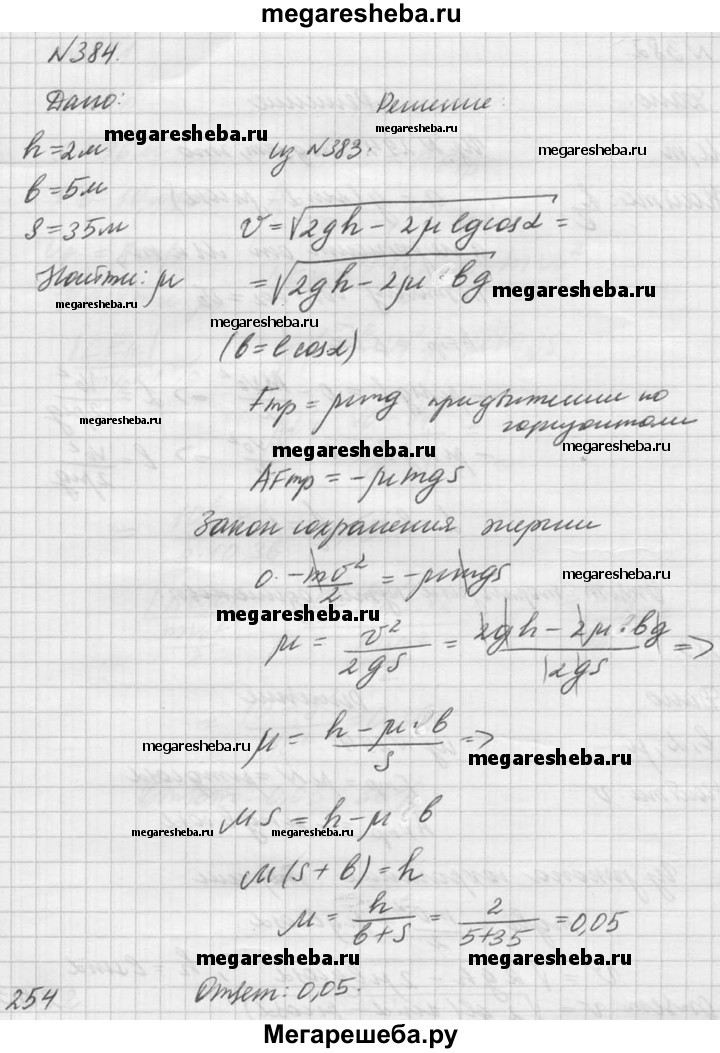 megaresheba.ru
№384.
Дано: Решение:
megaresheba.ru megaresheba.ru
h=2м из №383:
megaresheba.ru
b=5м
S=35м v=√(2gh-2μlgcosα)=
Найти: μ =√(2gh-2μ·bg)
megaresheba.ru megaresheba.ru
megaresheba.ru
(b=lcosα)
Fтр=μmg при движении по
горизонтали
megaresheba.ru megaresheba.ru
megaresheba.ru
AFтр=-μmgS
Закон сохранения энергии
0-mv²/2=-μmgS
megaresheba.ru
megaresheba.ru
μ=v²/2gS=(2gh-2μ·bg)/2gS=>
μ=(h-μ·b)/S=>
megaresheba.ru megaresheba.ru
μS=h-μ·b
megaresheba.ru megaresheba.ru
μ(S+b)=h
μ=h/(b+S)=2/(5+35)=0,05
megaresheba.ru megaresheba.ru
Ответ: 0,05.
254
megaresheba.ru megaresheba.ru
Мегарешеба.ру